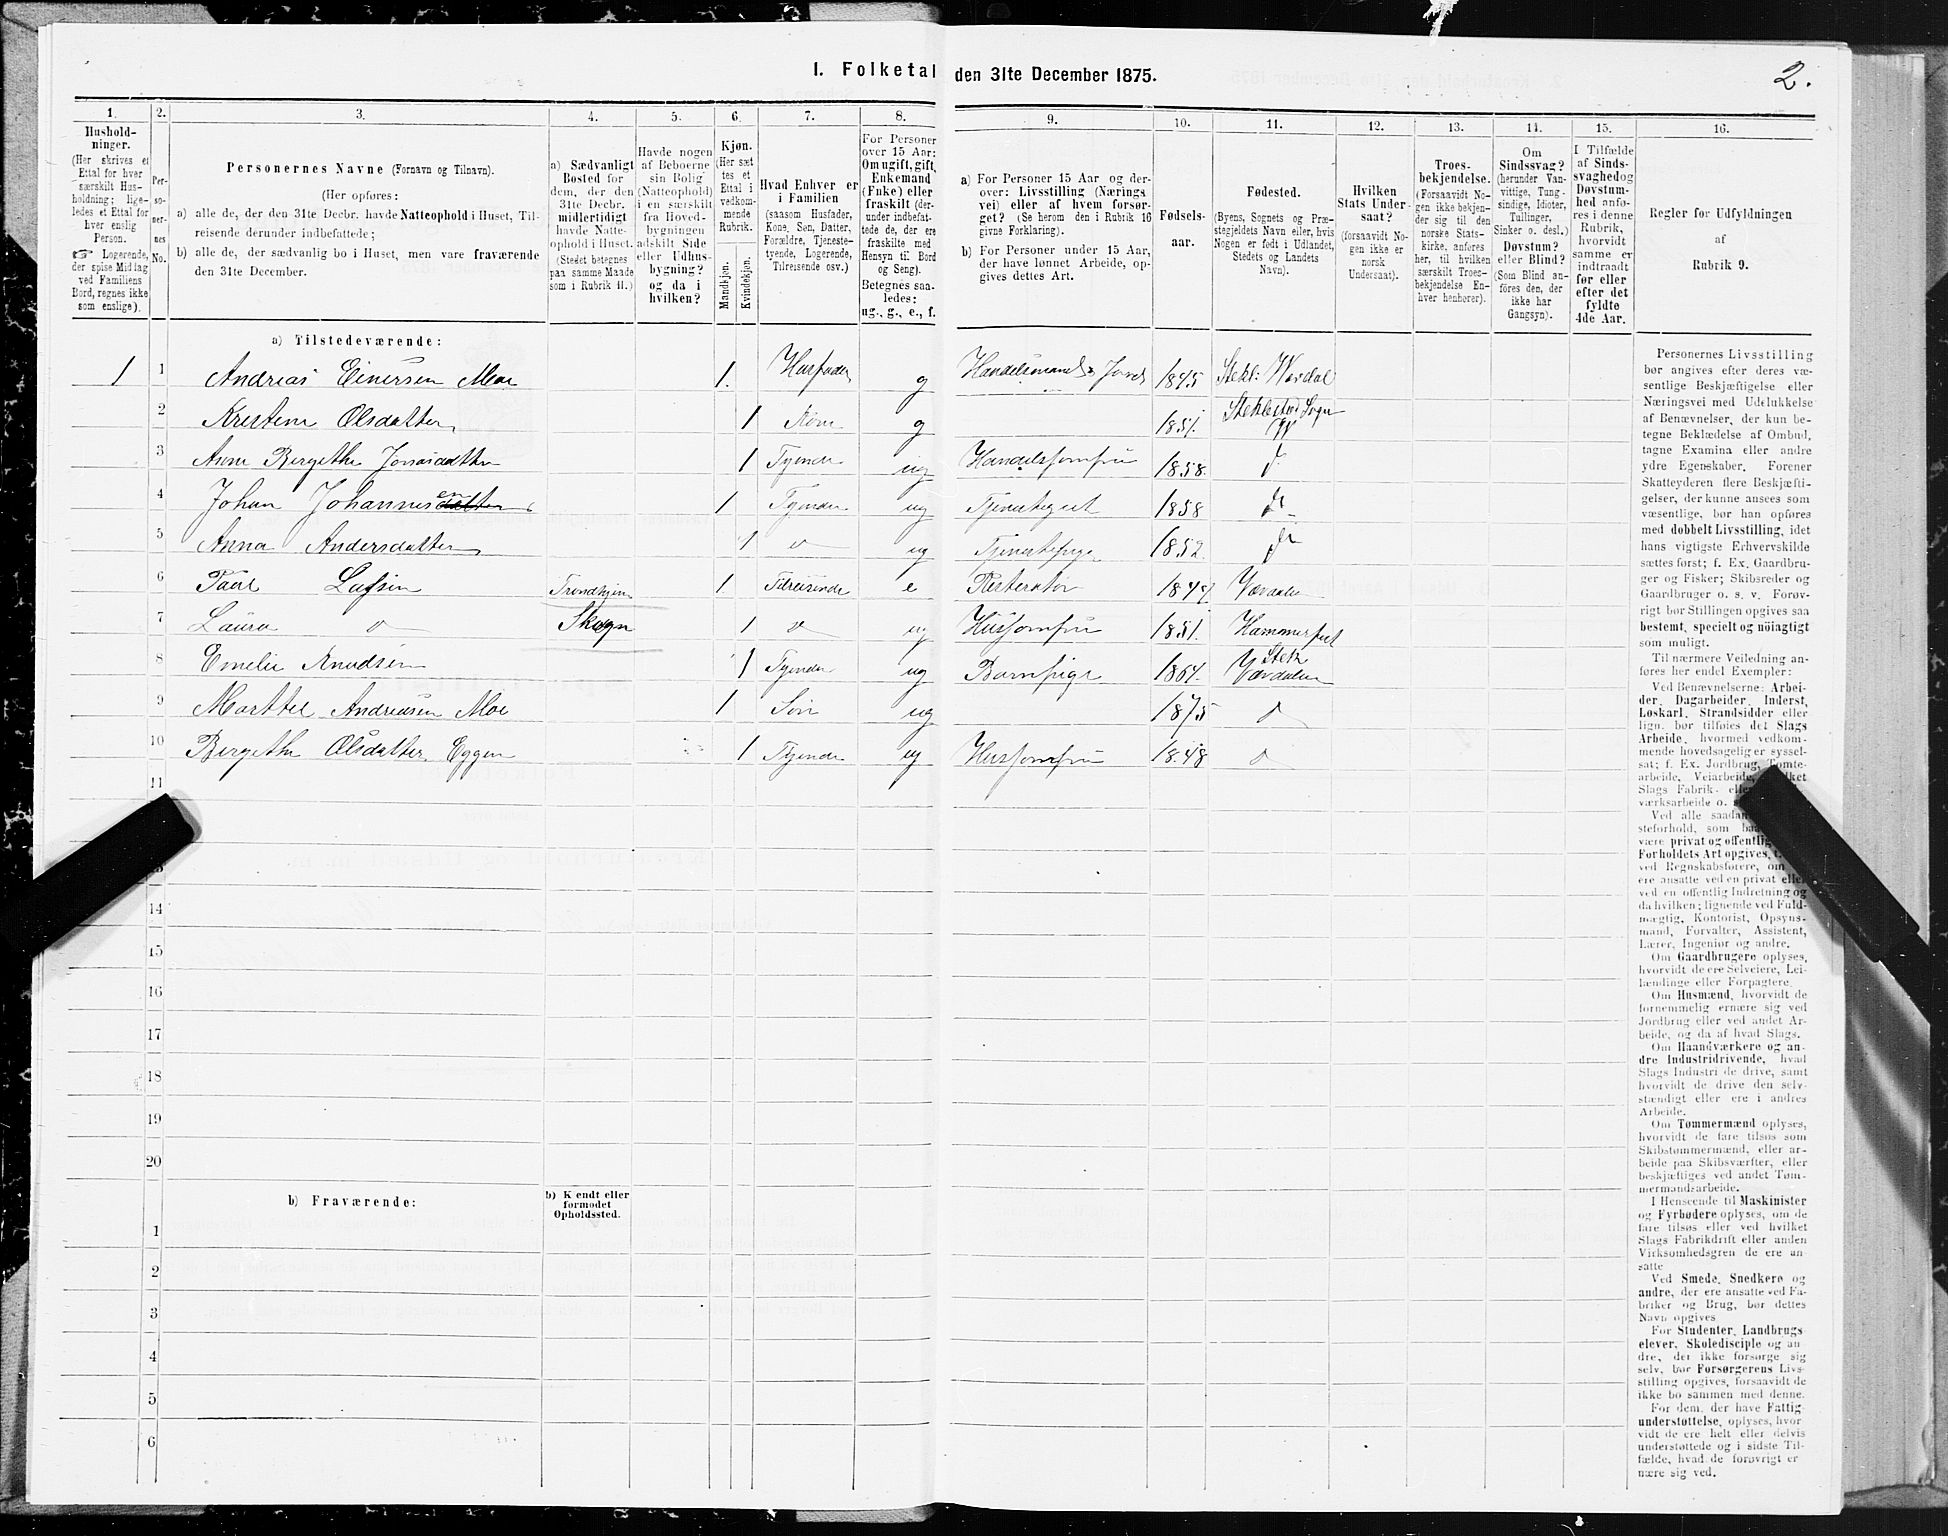 I. Folketal den 31te December 1875.
2.
1. 2. 3. 4. 5. 6. 7. 8. 9. 10. 11. 12. 13. 14. 15. 16.
Hushold-
ninger.
(Her skrives et
Ettal for hver
særskilt Hus-
holdning; lige-
ledes et Ettal for
hver enslig
Person.
☞ Logerende,
der spise Middag
ved Familiens
Bord, regnes ikke
som enslige).
Per-
soner-
nes
No.
Personernes Navne (Fornavn og Tilnavn).
(Her opføres:
a) alle de, der den 31te Decbr. havde Natteophold i Huset, Til-
reisende derunder indbefattede;
b) alle de, der sædvanlig bo i Huset, men vare fraværende
den 31te December.
a) Sædvanligt
Bosted for
dem, der den
31te Decbr.
midlertidigt
havde Natte-
ophold i Huset.
(Stedet betegnes
paa samme Maade
som i Rubrik 11.)
Havde nogen
af Beboerne
sin Bolig
(Natteophold)
i en særskilt
fra Hoved-
bygningen
adskilt Side
eller Udhus-
bygning?
og da i
hvilken?
Kjøn.
(Her sæt
tes et
Ettal i
vedkom-
mende
Rubrik.
Mandkjøn.
Kvindekjøn.
Hvad Enhver er
i Familien
(saasom Husfader,
Kone, Søn, Datter,
Forældre, Tjeneste-
tyende, Logerende,
Tilreisende osv.)
For Personer
over 15 Aar:
Om ugift, gift,
Enkemand
(Enke) eller
fraskilt (der-
under indbefat-
tede de, der ere
fraskilte med
Hensyn til Bord
og Seng).
Betegnes saa-
ledes:
ug., g., e., f.
a) For Personer 15 Aar og der-
over: Livsstilling (Nærings
vei) eller af hvem forsør-
get? (Se herom den i Rubrik 16
givne Forklaring).
b) For Personer under 15 Aar,
der have lønnet Arbeide, op-
gives dettes Art.
Fødsels-
aar.
Fødested.
(Byens, Sognets og Præ-
stegjeldets Navn eller, hvis
Nogen er født i Udlandet,
Stedets og Landets
Navn).
Hvilken
Stats Under-
saat?
(forsaavidt No-
gen ikke er
norsk
Undersaat).
Troes-
bekjendelse.
(Forsaavidt No-
gen ikke bekjen-
der sig til den
norske Stats-
kirke, anføres
her, til hvilken
særskilt Troes-
bekjendelse En-
hver henhører).
Om
Sindssvag?
(herunder Van-
vittige, Tung-
sindige, Idioter,
Tullinger,
Sinker o. desl.)
Døvstum?
eller Blind?
(Som Blind an-
føres den, der
ikke har
Gangsyn).
I Tilfælde
af Sinds-
svaghed og
Døvstum-
hed anfø-
res i denne
Rubrik,
hvorvidt
samme er
indtraadt
før eller
efter det
fyldte
4de Aar.
Regler for Udfyldningen
af
Rubrik 9.
a) Tilstedeværende:
1 1 Andreas Einersen Moe 1. Husfader g Handelsmand 1845 Stekl: Værdal
2 Kristine Olsdatter 1 Kone g 1851. Steklestad Sogn
3 Anne Bergethe Jonasdatter 1 Tyende ug Handelsjomfru 1858. d
4 Johan Johannesen 1 Tyende ug Tjenestegut 1858 do
5 Anna Andersdatter 1 do ug Tjenestepige 1852. do
6 Trondhjem 1 Tilreisende e Værdalen
7 Laura do Skogn 1 do ug Husjomfru 1851. Hammerfest
8 Emelie Knudsen 1 Tyende ug Barnepige 1864. Stek Værdalen
9 Andreasen Moe 1 Søn ug 1875 do
10 Bergethe Olsdatter Eggen 1 Tyende ug Husjomfru 1848 do
11
13
14
15
16
17
18
19
20
b) Fraværende:
b) Kjendt eller
formodet
Opholdssted.
1
2
3
4
5
6
Personernes Livsstilling
bør angives efter deres væ-
sentlige Beskjæftigelse eller
Næringsvei med Udelukkelse
af Benævnelser, der kun be-
tegne Beklædelse af Ombud,
tagne Examina eller andre
ydre Egenskaber. Forener
Skatteyderen flere Beskjæfti-
gelser, der kunne ansees som
væsentlige, bør han opføres
med dobbelt Livsstilling, idet
hans vigtigste Erhvervskilde
sættes først; f. Ex. Gaardbru-
ger og Fisker; Skibsreder og
Gaardbruger o. s. v. Forøv-
rigt bør Stillingen opgives saa
bestemt, specielt og nöiagtigt
som muligt.
Til nærmere Veiledning an-
føres her endel Exempler:
Ved Benævnelserne: Arbei-
der, Dagarbeider, Inderst,
Løskarl, Strandsidder eller
lign. bør tilføies det Slags
Arbeide, hvormed vedkom-
mende hovedsagelig er syssel-
sat; f. Ex. Jordbrug, Tomte-
arbeide, Veiarbeide,
Slags Fabrik-
værksarbeide o.
Ved alle
steforhold, som
være privat og offentlig
Forholdets Art opgives,
ved Regnskabsførere, om
ere ansatte ved en privat eller
ved en offentlig Indretning og
da hvilken; lignende ved Fuld-
mægtig, Kontorist, Opsyns-
mand, Forvalter, Assistent,
Lærer, Ingeniør og andre.
Om Gaardbrugere oplyses,
hvorvidt de ere Selveiere, Lei-
lændinge eller Forpagtere.
Om Husmænd, hvorvidt de
fornemmelig ernære sig ved
Jordbrug eller ved andet Ar-
beide, og da af hvad Slags.
Om Haandværkere og an-
dre Industridrivende, hvad
Slags Industri de drive, samt
hvorvidt de drive den selv-
stændigt eller ere i andres
Arbeide.
Om Tømmermænd oplyses,
hvorvidt de fare tilsøs som
Skibstømmermænd, eller ar-
beide paa Skibsværfter, eller
beskjæftiges ved andet Tøm-
mermandsarbeide.
I Henseende til Maskinister
og Fyrbødere oplyses, om de
fare tilsøs eller ved hvilket
Slags Fabrikdrift eller anden
Virksomhedsgren de ere an-
satte
Ved Smede, Snedkere og
andre, der ere ansatte ved Fa-
briker og Brug, bør dettes
Navn opgives
For Studenter, Landbrugs
elever, Skoledisciple og an
dre, der ikke forsørge sig
selv, bør Forsørgerens Livs-
stilling opgives, forsaavidt de
ikke bo sammen med denne.
For dem, der have Fattig-
understøttelse, oplyses, hvor
vidt de ere helt eller delvis
understøttede og i sidste Til-
fælde, hvad de forøvrigt er
nære sig ved.